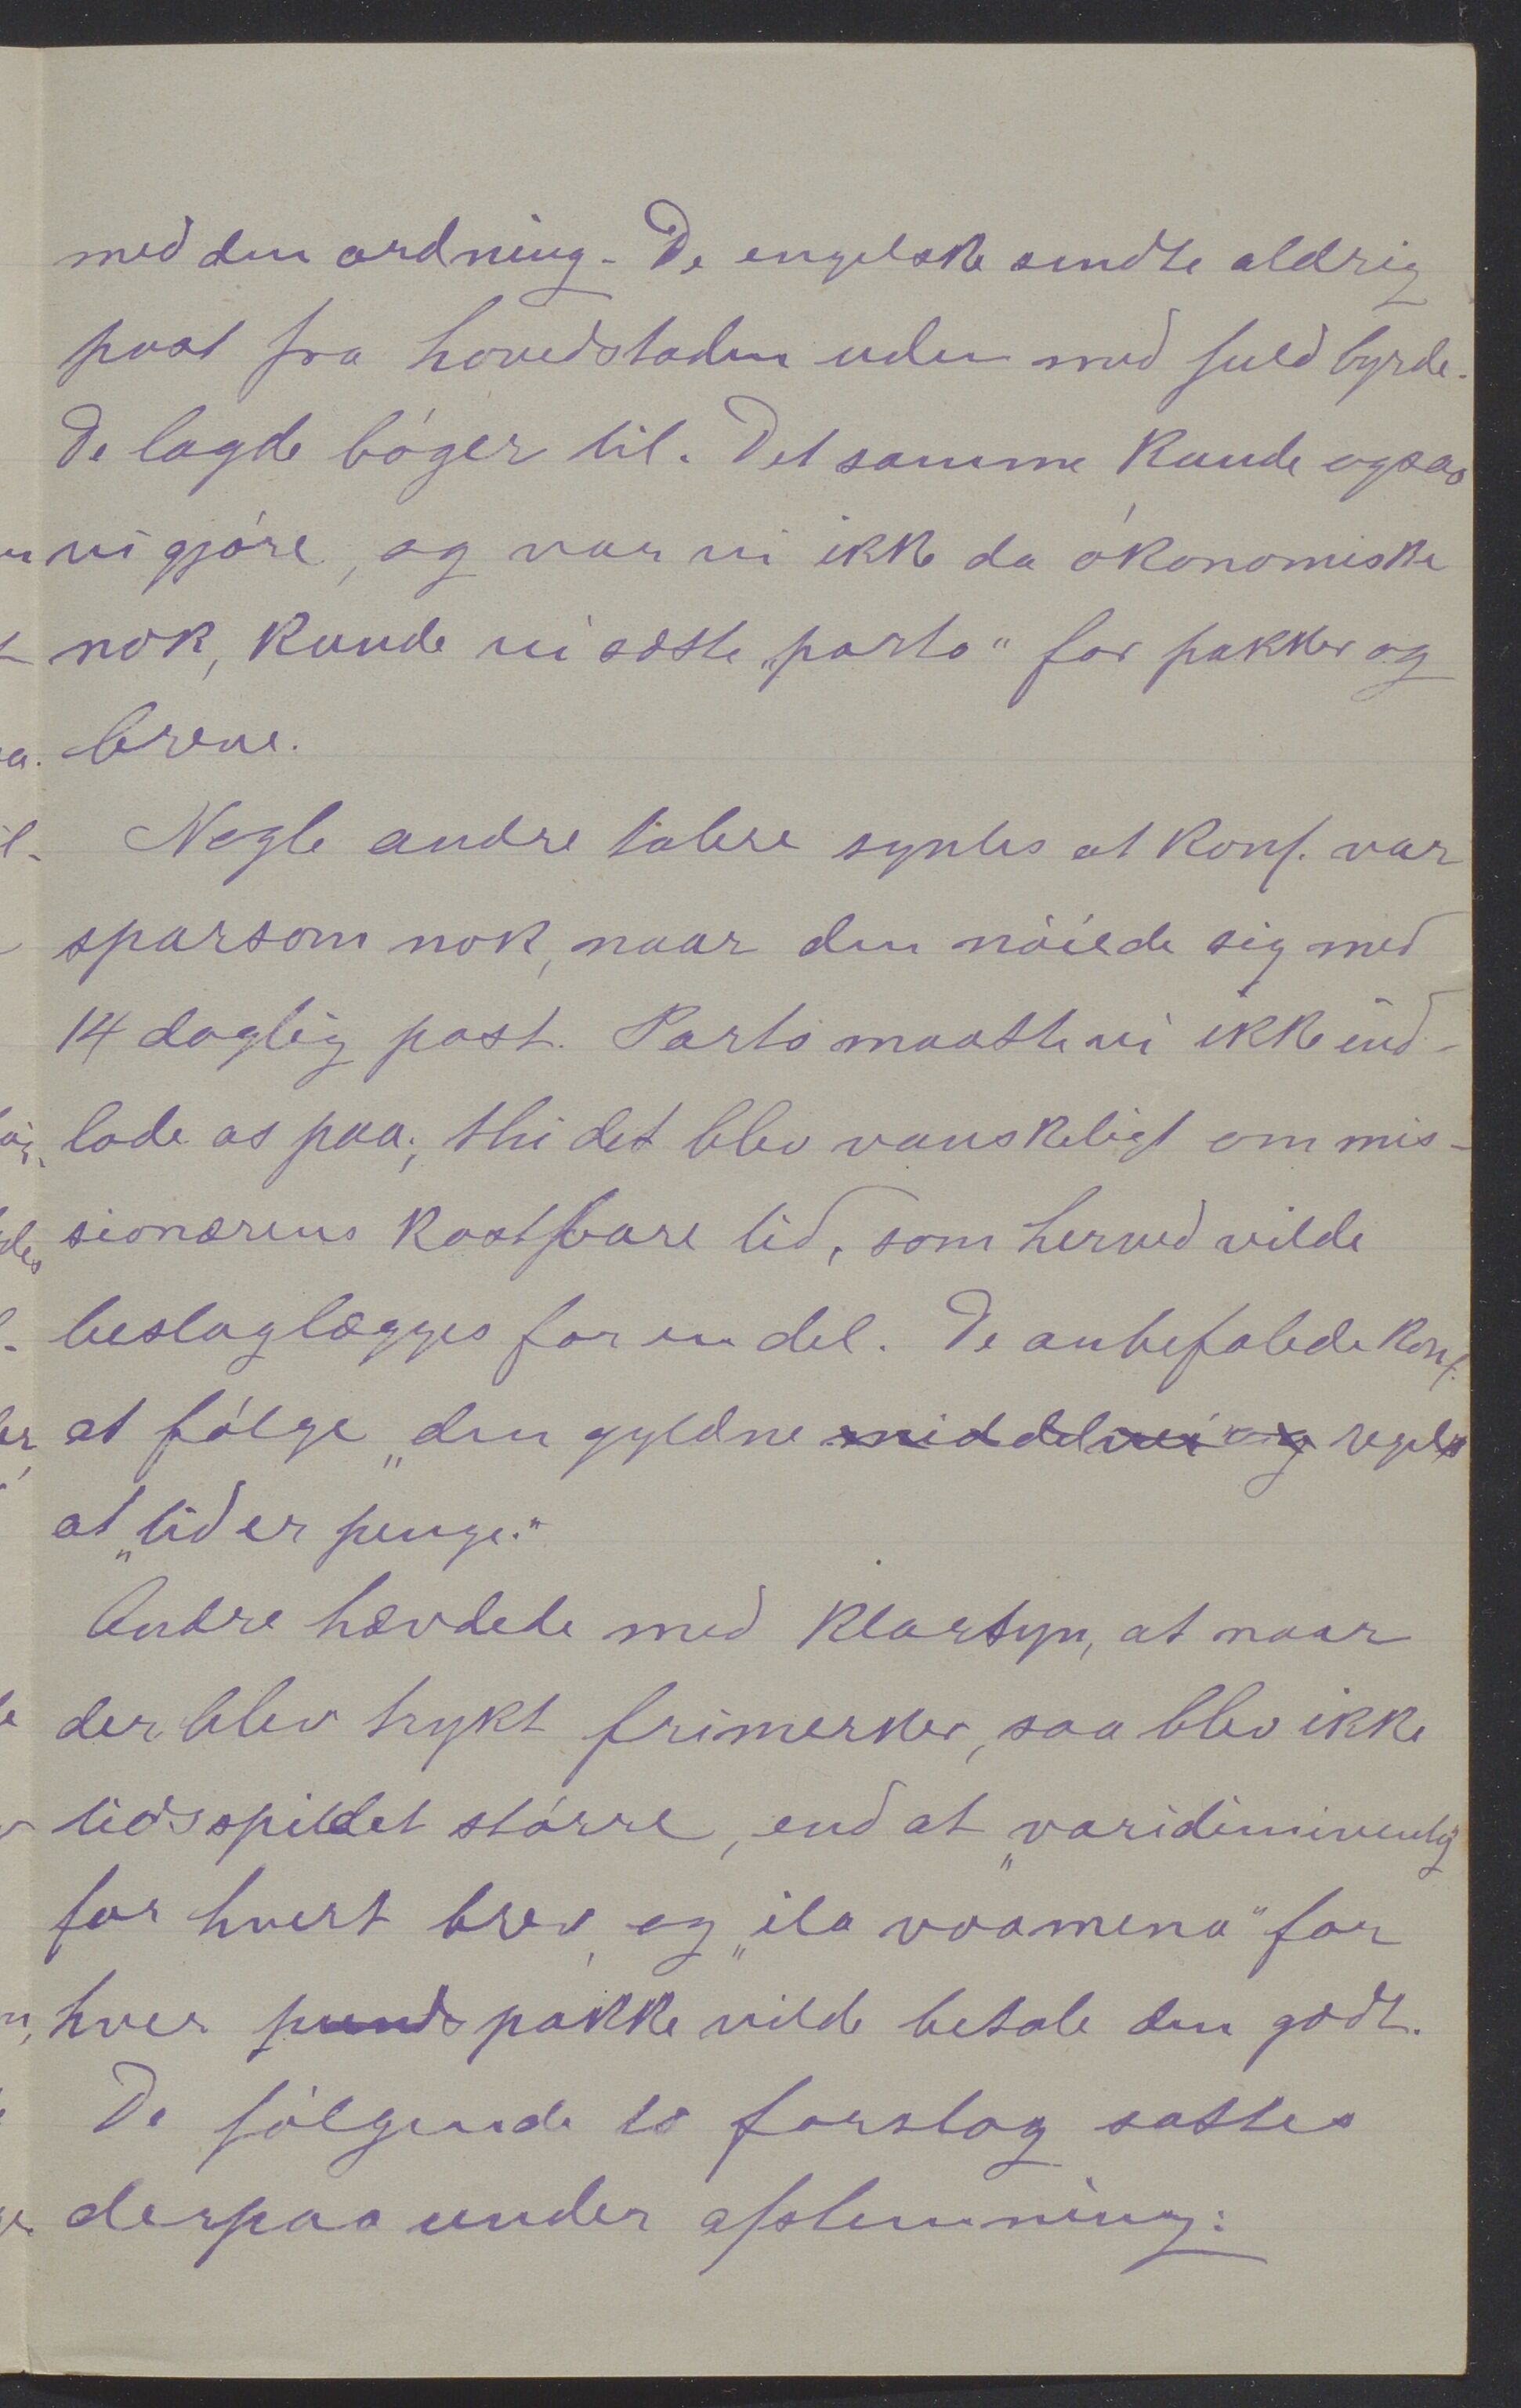 med den ordning. De engelske sendte aldrig
post fra hovedstaden uden med fuld byrde.
De lagde bóger til. Det samme kunde ogsaa
vi gjóre, og var vi ikke da ókonomiske
nok, kunde vi sætte „porto" for pakker og
breve.
Nogle andre talere syntes at konf. var
sparsom nok, naar den nóiede sig med
14 daglig post. Porto maatte vi ikke ind-
lade os paa; thi det blev vanskeligt om mis-
sionærens kostbare tid, som herved vilde
beslaglægges for en del. De anbefalede konf.
at fólge „den gyldne middelvei og regel
at „tid er penge."
Andre hævdede med klarsyn, at naar
der blev trykt frimerker, saa blev ikke
tidsspildet stórre, end at „varidimiventy
for hvert brev, og „ila voamena" for
hver punds pakke vilde betale den godt.
De fólgende to forslag sattes
derpaa under afstemning: